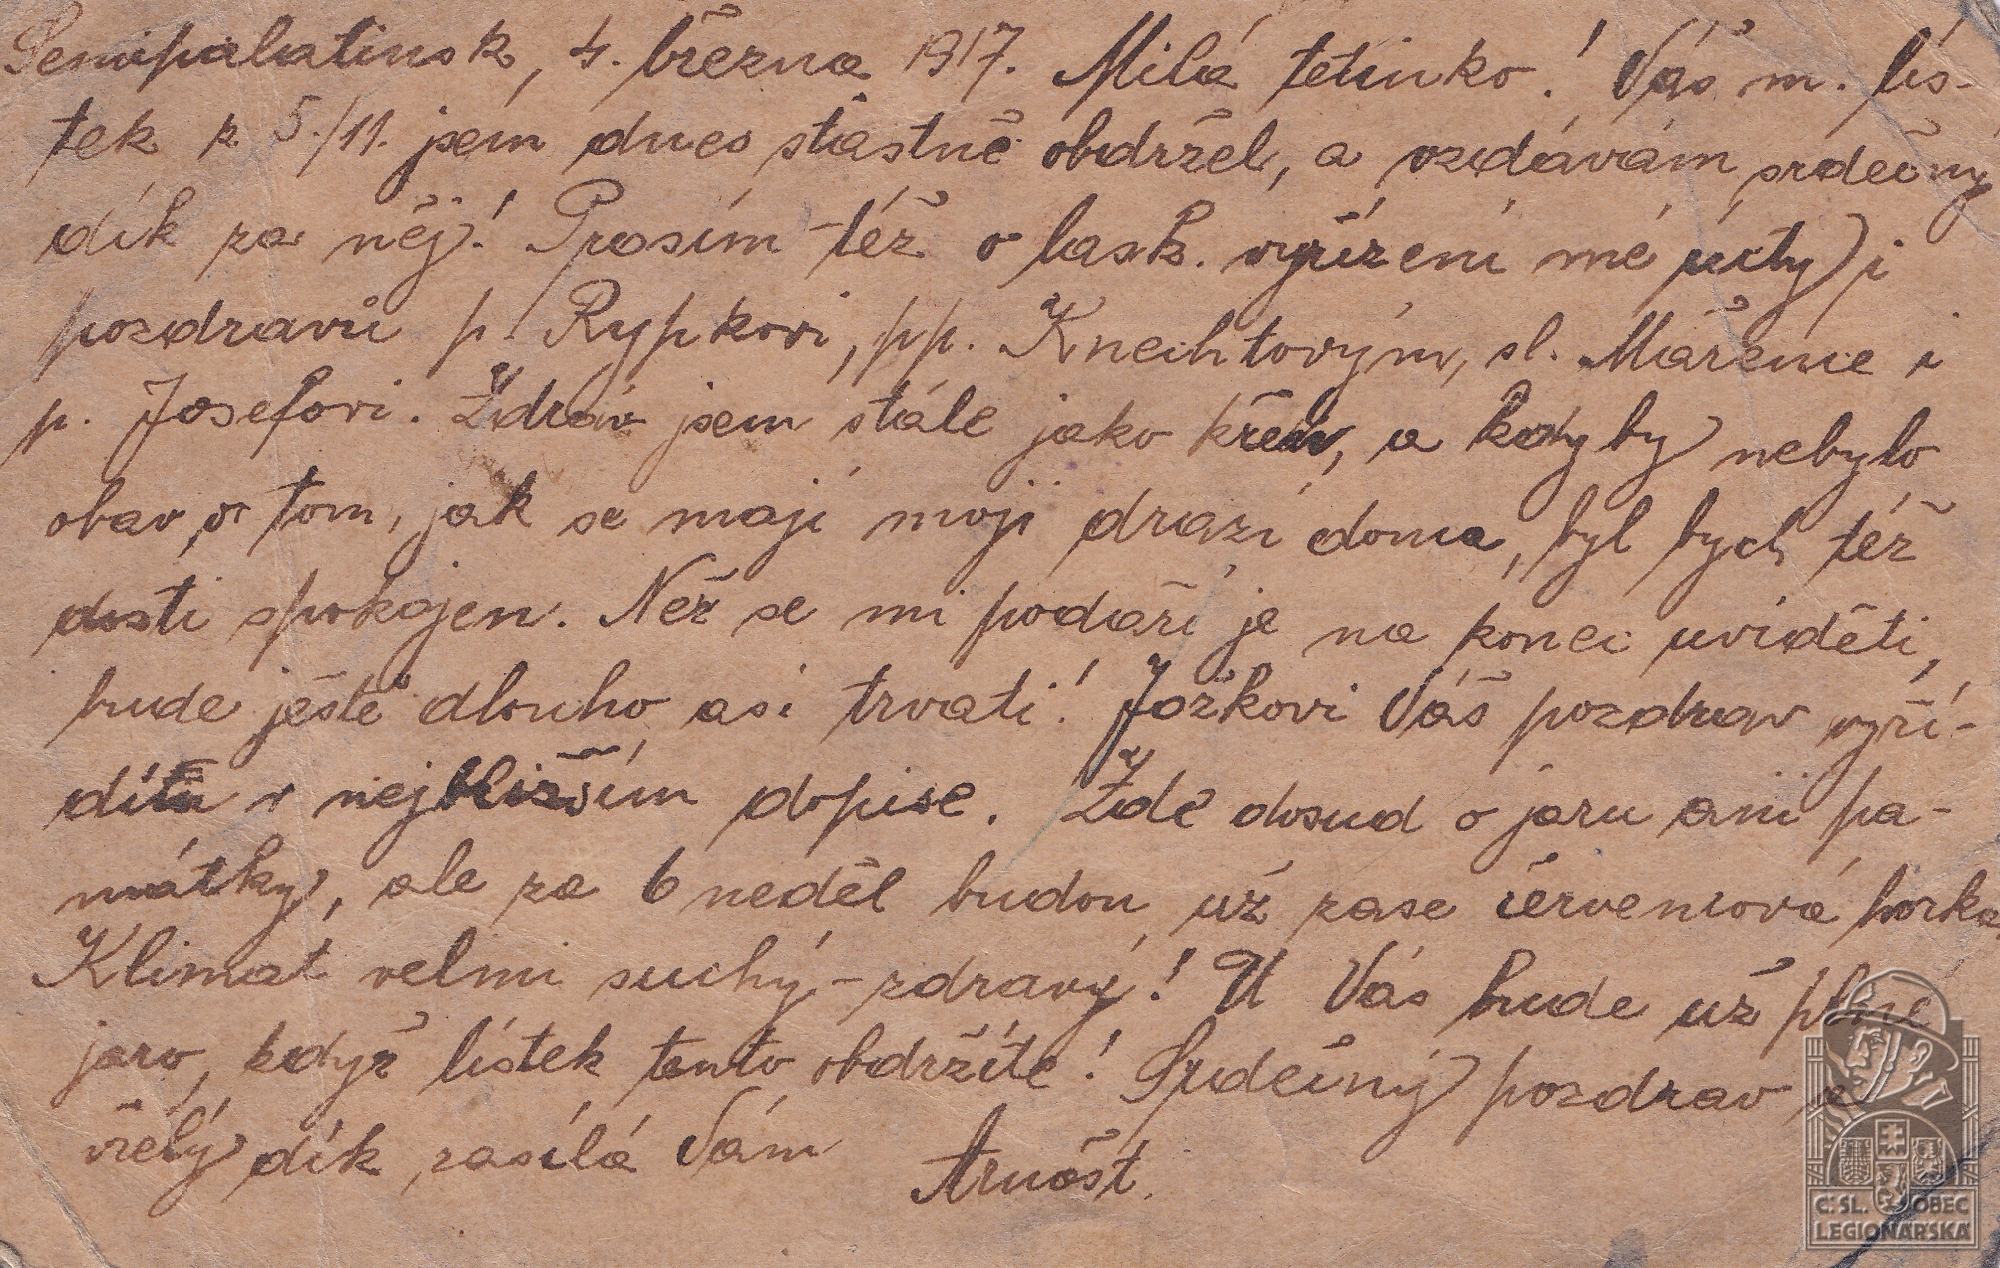 Semipalatinsk, 4. března 1917. Milá tetinko! Váš m. lís-
tek z 5./11. jsem dnes šťastně obdržel, a vzdávám srdečný
dík za něj! Prosím též o lask. vyřízení mé úcty i
pozdravů p. Rypkovi, pp. Knechtovým, sl. Mařence i
p. Josefovi. Zdráv jsem stále jako křen, a kdyby nebylo
obav o tom, jak se mají moji drazí doma, byl bych též
dosti spokojen. Než se mi podaří je na konec uviděti,
bude ještě dlouho asi trvati! Jožkovi Váš pozdrav vyří-
dím v nejbližším dopise. Zde dosud o jaru ani pa-
mátky, ale za 6 neděl budou už zase červencová horka.
Klimat velmi suchý - zdravý! U Vás bude už plné
jaro, když lístek tento obdržíte! Srdečný pozdrav a
vřelý dík zasílá Vám Arnošt.
Č. SL. OBEC
LEGIONÁŘSKÁ